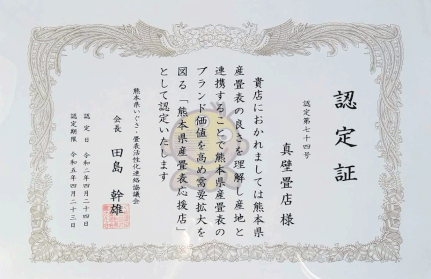 認定証
認定第七十四号
真壁畳店 様
貴店におかれましては熊本県
産畳表の良さを理解し産地と
連携することで熊本県産畳表の
ブランド価値を高め需要拡大を
図る「熊本県産畳表応援店」
として認定いたします
熊本県いぐさ・畳表活性化連絡協議会
会長 田島 幹雄
認定日 令和二年四月二十四日
認定期限 令和五年四月二十三日